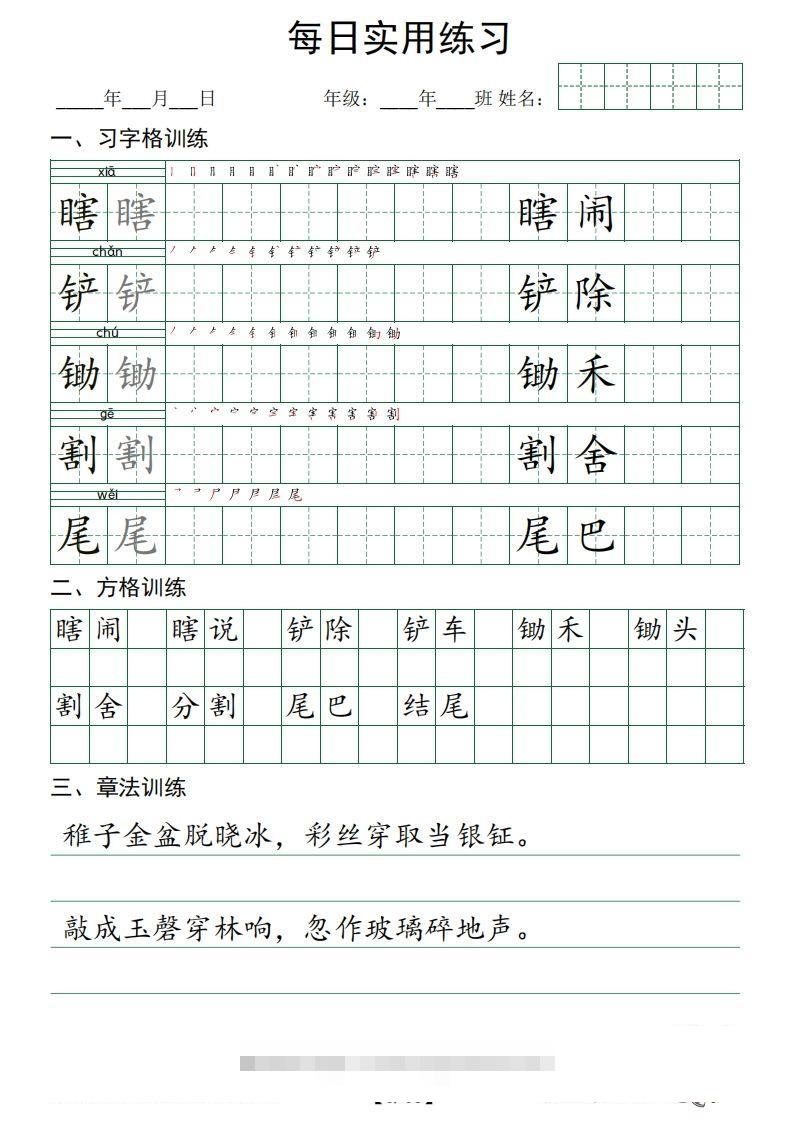 每日实用练习
_____年___月___日 年级：____年____班 姓名：
一、习字格训练
xiā
瞎 瞎 瞎 闹
chǎn
铲 铲 铲 除
chú
锄 锄 锄 禾
gē
割 割 割 舍
wěi
尾 尾 尾 巴
二、方格训练
瞎闹 瞎说 铲除 铲车 锄禾 锄头
割舍 分割 尾巴 结尾
三、章法训练
稚子金盆脱晓冰，彩丝穿取当银钲。
敲成玉磬穿林响，忽作玻璃碎地声。